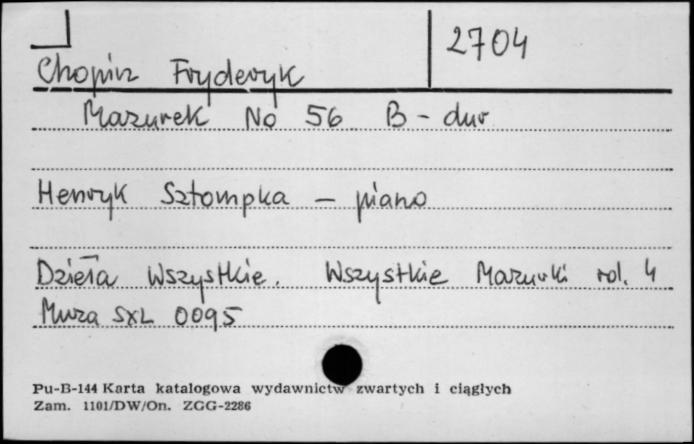 2704
Chopin Fryderyk
Mazurek No 56 B-dur
Henryk Sztompka – piano
Dzieła Wszystkie. Wszystkie Mazurki vol. 4
Muza SXL 0095
Pu-B-144 Karta katalogowa wydawnictw zwartych i ciągłych
Zam. 1101/DW/On. ZGG-2286